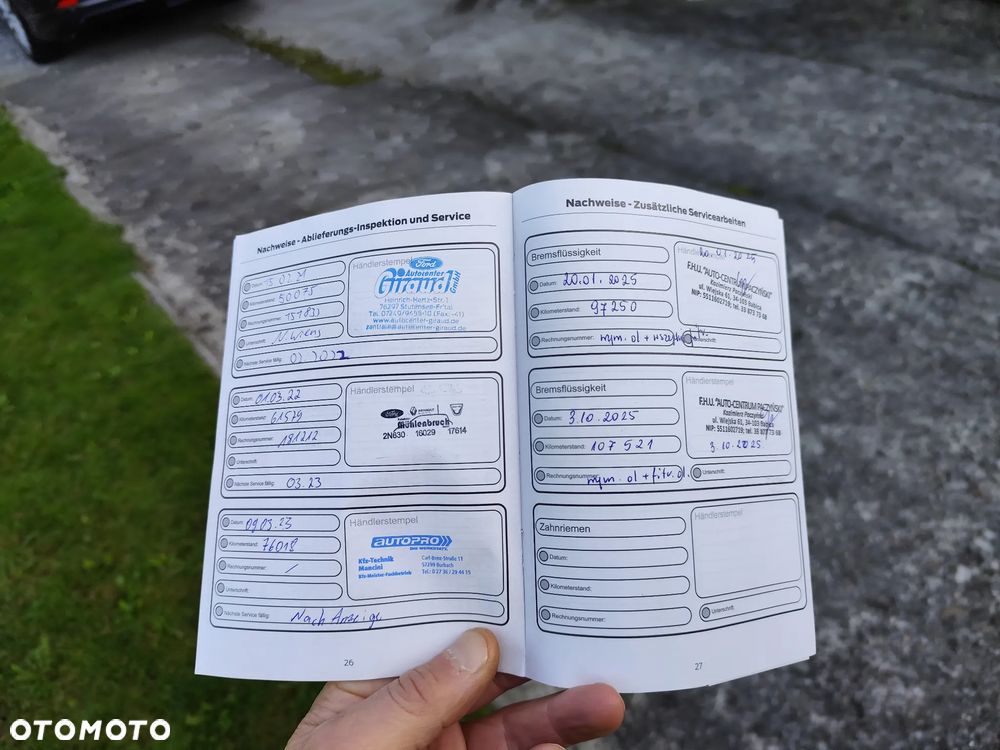 Nachweise - Ablieferungs-Inspektion und Service
Datum: 15.07.21
Kilometerstand: 50075
Rechnungsnummer: 151833
Unterschrift:
Nächste Service fällig:
Händlerstempel
Ford
Autocenter
Giraud GmbH
Heinrich-Hertz-Str.
76297 Stutensee-Frtal
www.autocenter-giraud.de
zentrale@autocenter-giraud.de
Datum: 01.03.22
Kilometerstand: 61579
Rechnungsnummer: 191212
Unterschrift:
Nächste Service fällig: 03.23
Händlerstempel
Ford
Mühlenbruch
2N630 16029 17614
Datum: 09.03.23
Kilometerstand: 76018
Rechnungsnummer: /
Unterschrift:
Nächste Service fällig: Nach Anzeige
Händlerstempel
AUTOPRO
DIE WERKSTATT.
Kfz-Technik
Mancini
Kfz-Meister-Fachbetrieb
Carl-Benz-Straße 11
57299 Burbach
Tel.: 0 27 36 / 29 44 15
26
Nachweise - Zusätzliche Servicearbeiten
Bremsflüssigkeit
Datum: 20.01.2025
Kilometerstand: 97250
Rechnungsnummer: wym. ol +
Unterschrift:
Händlerstempel
20.01.2025
F.H.U. "AUTO-CENTRUM PACZYŃSKI"
Kazimierz Paczyński
ul. Wiejska 61, 34-103 Babica
NIP: 5511602719; tel. 33 873 73 68
Bremsflüssigkeit
Datum: 3.10.2025
Kilometerstand: 107521
Rechnungsnummer: wym. ol + filtr. ol.
Unterschrift:
Händlerstempel
F.H.U. "AUTO-CENTRUM PACZYŃSKI"
Kazimierz Paczyński
ul. Wiejska 61, 34-103 Babica
NIP: 5511602719; tel. 33 873 73 68
3.10.2025
Zahnriemen
Datum:
Kilometerstand:
Rechnungsnummer:
Unterschrift:
Händlerstempel
27
OTOMOTO